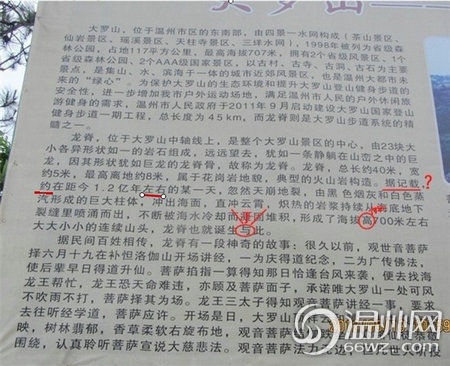 大罗山
大罗山，位于温州市区的东南部，由四景一水网构成（茶山景区、
仙岩景区、瑶溪景区、天柱寺景区、三垟水网），1998年被列为省级森
林公园，占地117平方公里，最高海拔707米，拥有2个省级风景区、1个
省级森林公园、2个AAA级国家景区，以古村、古寺、古洞、古石为主要
景点，是集山、水、滨海于一体的城市近郊风景区，也是温州大都市未
来的“绿心”。为保护大罗山的生态环境和提升大罗山登山健身步道的
安全性，进一步增加我市户外运动场地，满足温州市人民的户外休闲旅
游健身的需求，温州市人民政府于2011年9月启动建设大罗山国家登山
健身步道一期工程，总长度为45km，而龙脊则是大罗山步道系统的精
髓之一。
龙脊，位于大罗山中轴线上，是整个大罗山景区的中心，由23块大
小各异形状如一的岩石组成，远远望去，犹如一条静躺在山峦之中的巨
龙，因其形状犹如巨龙的龙脊骨，故称为龙脊。龙脊总长，约50米，宽
约5米，最高离地约8米，属于花岗岩地貌，典型的火山岩构造。据记载，?
约在距今1.2亿年左右的某一天，忽然天崩地裂，由黑色烟灰和白色蒸
汽形成的巨大柱体，冲出海面，直冲云霄，炽热的岩浆持续从海底地下
裂缝里喷涌而出，不断被海水冷却而凝固堆积，形成了海拔高700米左右
大大小小的连续山头，龙脊也就诞生与此。
据民间百姓相传，龙脊有一段神奇的故事：很久以前，观世音菩萨
择六月十九在补怛洛伽山开场讲经，一为庆得道纪念，二为广传佛法，
使后辈早日得道升仙。菩萨掐指一算得知那日恰逢台风来袭，便去找海
龙王帮忙，龙王恐天命难违，亦顾及菩萨面子，承诺唯大罗山一处可风
不吹雨不打，菩萨择其为场。龙王三太子得知观音菩萨讲经一事，要求
去往听经学道，菩萨应许。开场是日，大罗山
映，树林翡郁，香草柔软右旋布地，观音菩萨
围绕，认真聆听菩萨宣说大慈悲法。观音菩萨法
温州网